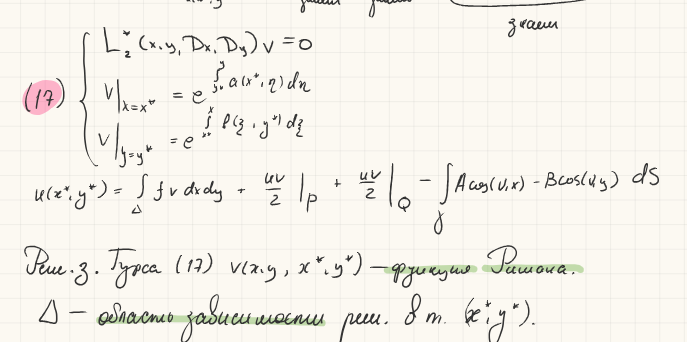 знаем
(17) { L₂* (x.y, Dx, Dy) v = 0
v|ₓ₌ₓ* = e^{∫_{y*}^{y} a(x*, η) dη}
v|_{y=y*} = e^{∫_{x*}^{x} β(ξ, y*) dξ}
u(x*, y*) = ∫_Δ f v dxdy + uv/2 |_P + uv/2 |_Q − ∫_γ A cos(ν,x) − B cos(ν,y) dS
Реш. з. Гурса (17) v(x.y, x*, y*) — функция Римана.
Δ — область зависимости реш. в т. (x*, y*).